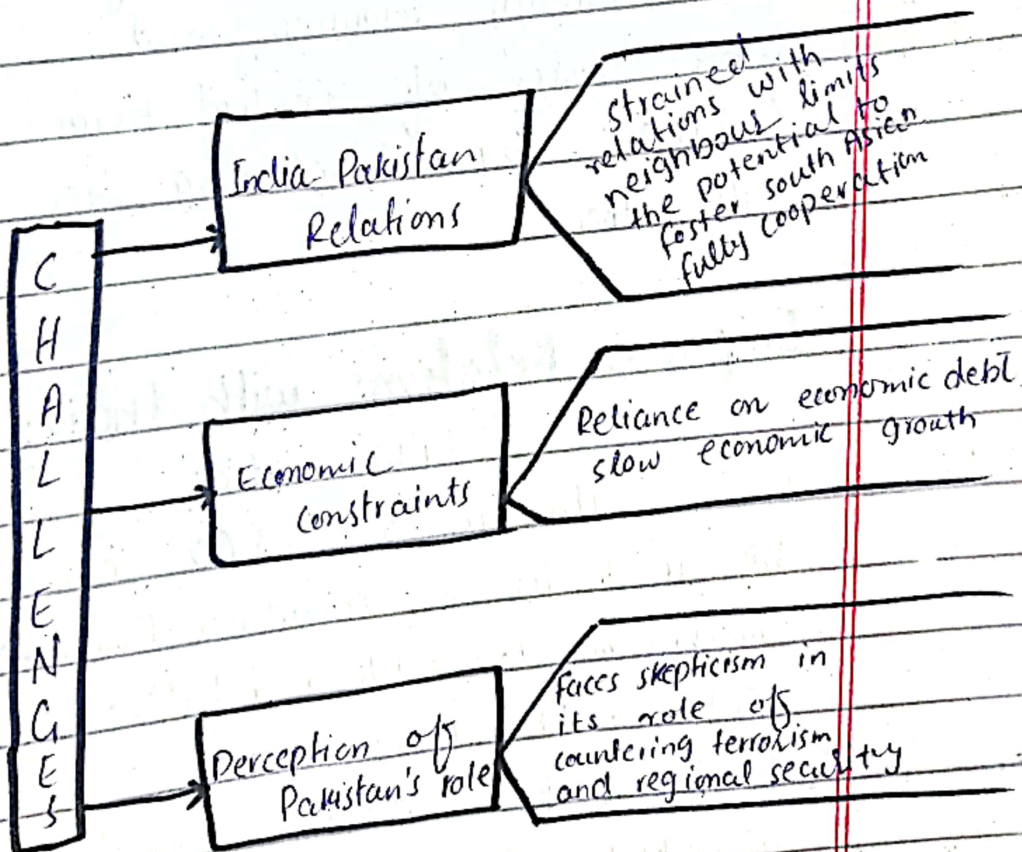 CHALLENGES
India Pakistan
Relations
strained
relations with
neighbous limits
the potential to
foster south Asian
fully cooperation
Economic
constraints
Reliance on economic debt
slow economic growth
Perception off
Pakistan's role
faces skepticism in
its role off
countering terrorism
and regional security